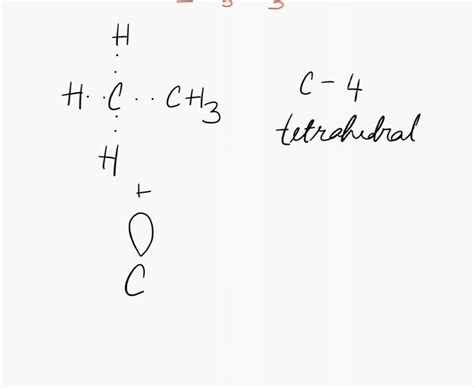 H
H · · C · · CH3
H
+
C
C - 4
tetrahedral